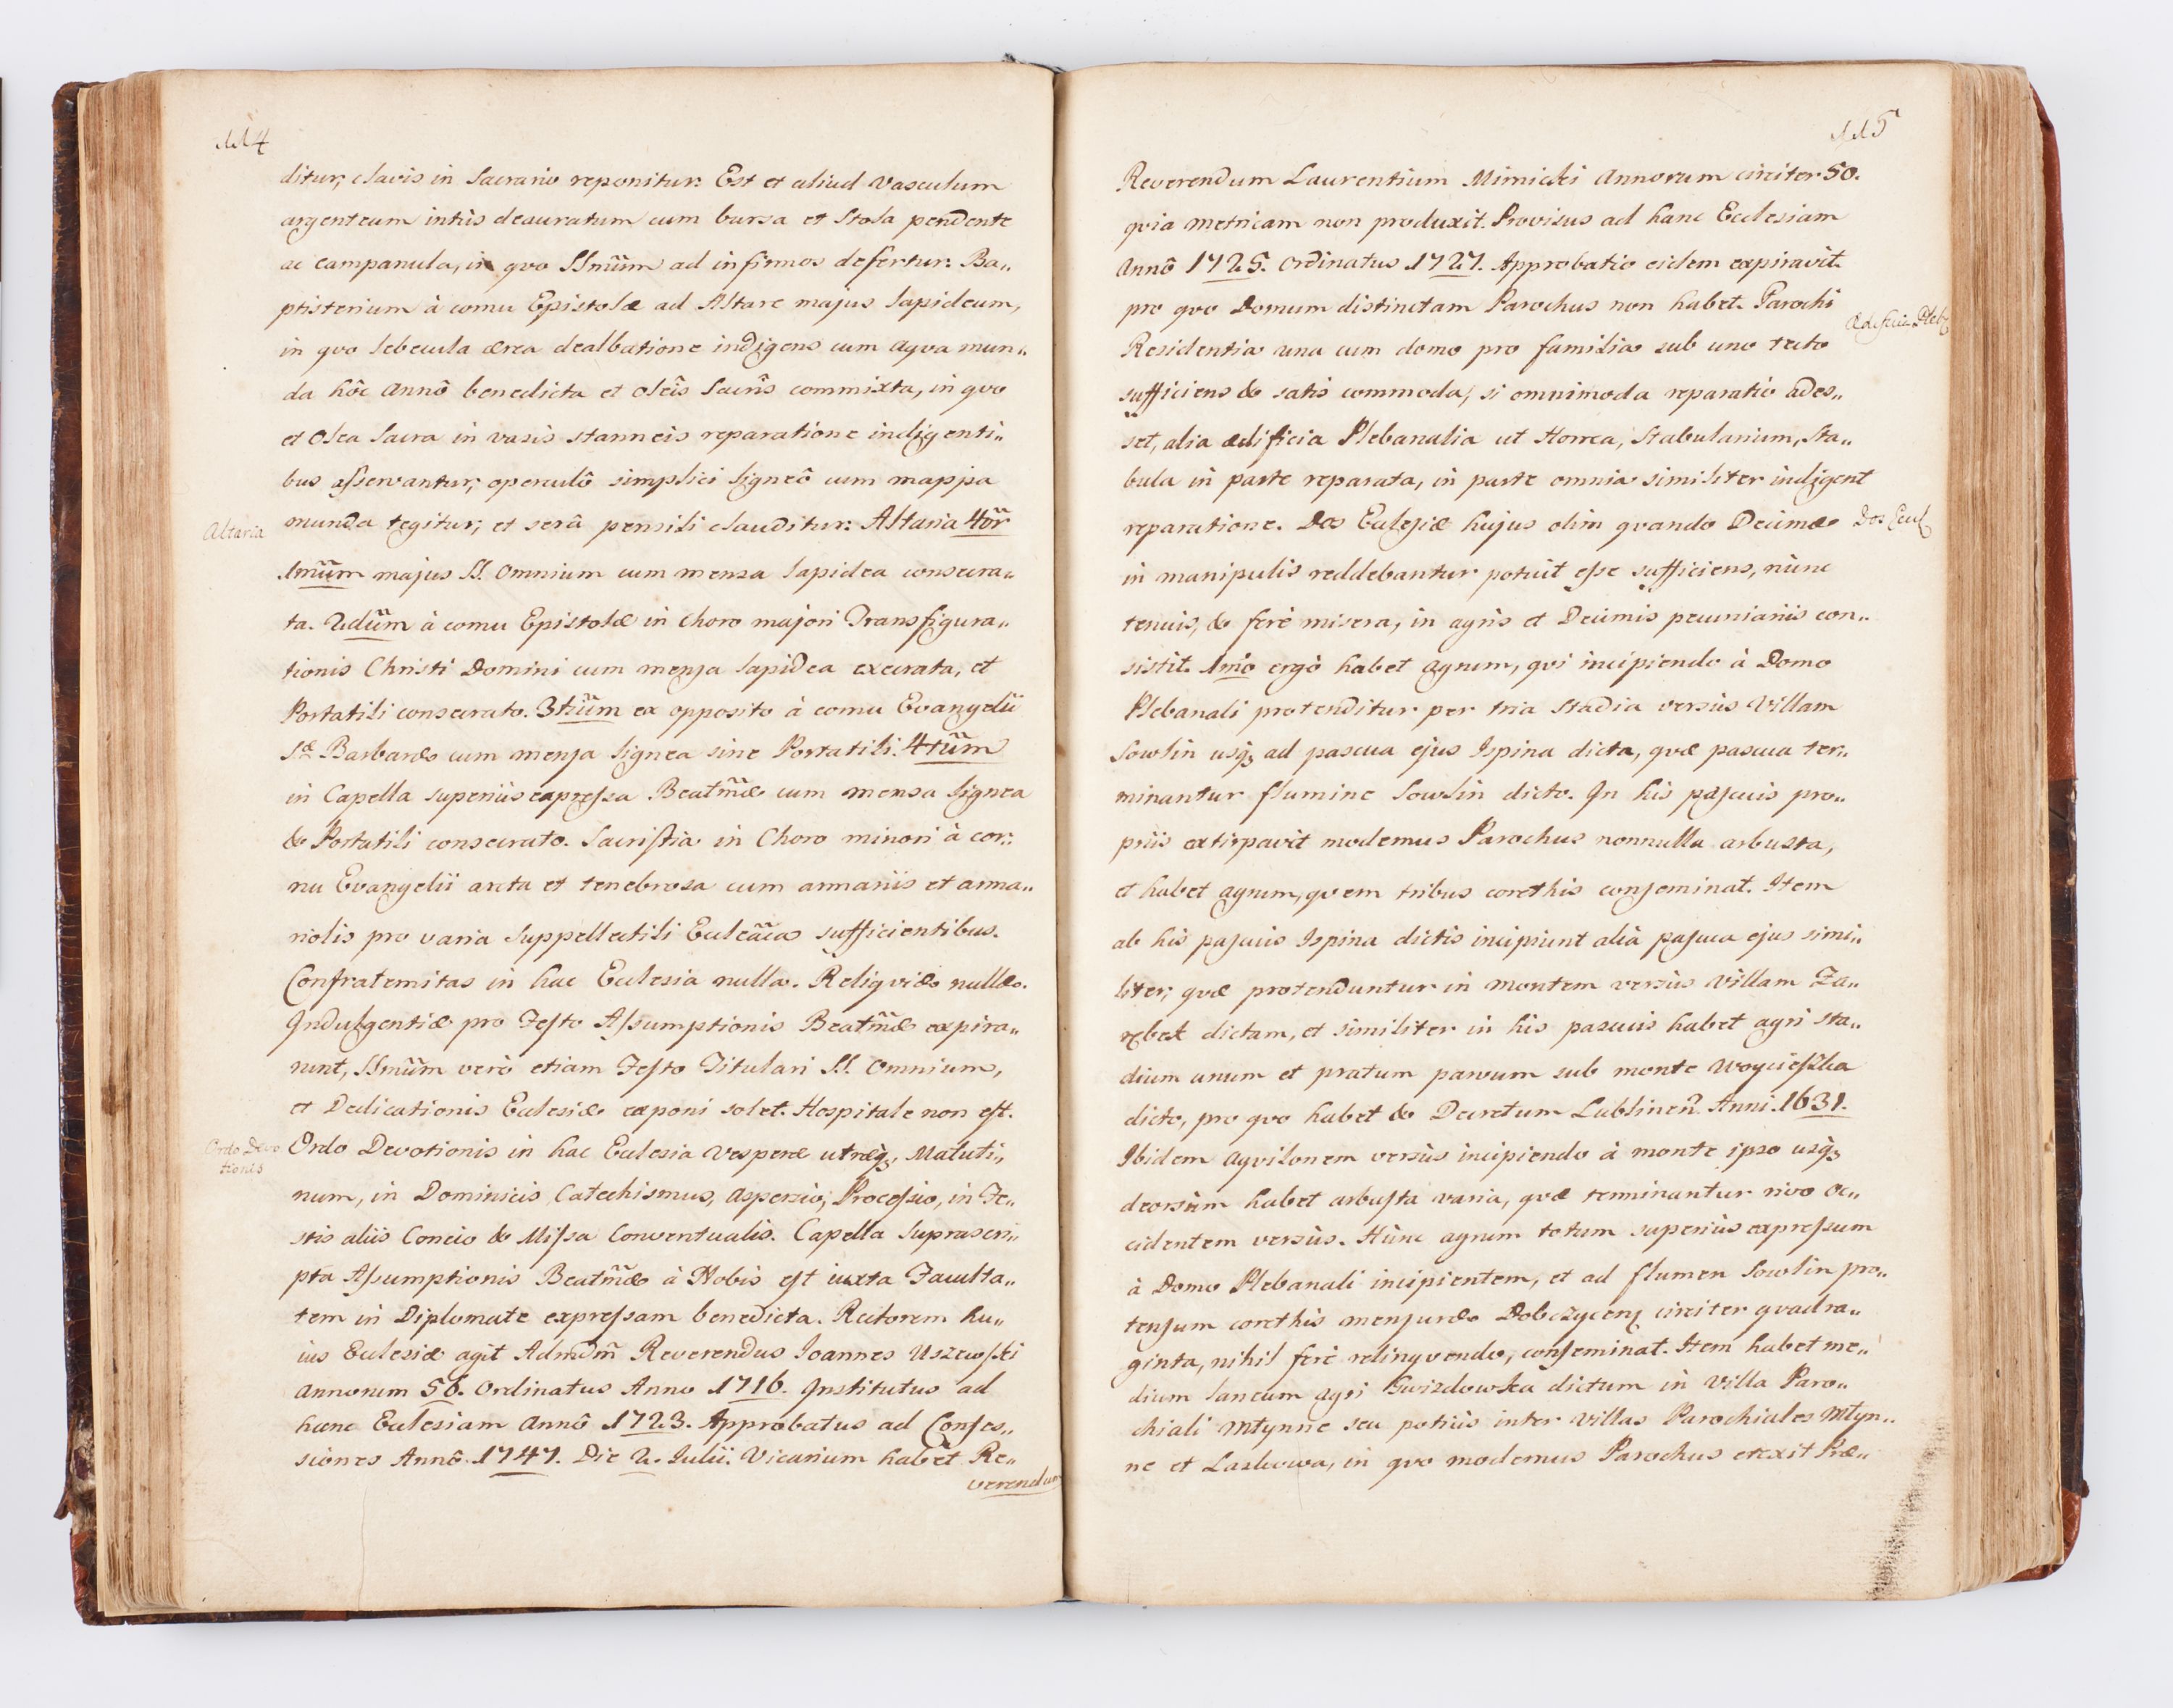 114
ditur, clavis in Sacrario reponitur. Est et aliud vasculum
argenteum intùs deauratum cum bursa et Stola pendente
ac campanula, in qvo SSmũm ad infirmos defertur. Ba„
ptisterium à cornu Epistolæ ad Altare majus lapideum,
in qvo lebecula ærea dealbatione indigens cum aqva mun„
da hôc Annô benedicta et oleis Sacris commixta, in qvo
et Olea Sacra in vasis stanneis reparatione indigenti„
bus asservantur, operculô simplici ligneô cum mappa
Altaria
munda tegitur, et serâ pensili clauditur. Altaria 4õr
1mũm majus SS. Omnium cum mensa lapidea consecra„
ta. 2dũm à cornu Epistolæ in choro majori Transfigura„
tionis Christi Domini cum mensa lapidea execrata, et
Portatili consecrato. 3tiũm ex opposito à cornu Evangelii
Sæ Barbaræ cum mensa lignea sine Portatili. 4tũm
in Capella superiùs expressa Beatm̃æ cum mensa lignea
& Portatili consecrato. Sacristia in Choro minori à cor„
nu Evangelii arcta et tenebrosa cum armariis et arma„
riolis pro varia Suppellectili Ecclcãica sufficientibus.
Confraternitas in hac Ecclesia nulla. Reliqviæ nullæ.
Indulgentiæ pro Festo Assumptionis Beatm̃æ expira„
runt, SSmũm verò etiam Festo Titulari SS. Omnium,
et Dedicationis Ecclesiæ exponi solet. Hospitale non est.
Ordo Devo
tionis
Ordo Devotionis in hac Ecclesia Vesperæ utræq₃, Matuti„
num, in Dominicis Catechismus, Aspersio, Processio, in Fe„
stis aliis Concio & Missa Conventualis. Capella Suprascri„
pta Assumptionis Beatm̃æ à Nobis est iuxta Faculta„
tem in Diplomate expressam benedicta. Rectorem hu„
ius Ecclesiæ agit Admdm̃ Reverendus Joannes Uszewski
annorum 56. Ordinatus Anno 1716. Institutus ad
hanc Ecclesiam Annô 1723. Approbatus ad Confes„
siones Annô 1747. Die 2. Julii. Vicarium habet Re„
verendum
115
Reverendum Laurentium Mimicki Annorum circiter 50.
qvia metricam non produxit. Provisus ad hanc Ecclesiam
Annô 1725. Ordinatus 1727. Approbatio eidem expiravit.
pro qvo Domum distinctam Parochus non habet. Parochi
Ædificia Pleb
Residentia una cum domo pro familia sub uno tecto
sufficiens & satis commoda, si omnimoda reparatio ades„
set, alia ædificia Plebanalia ut Horrea, Stabularium, Sta„
bula in parte reparata, in parte omnia similiter indigent
reparatione. Dos Ecclesiæ hujus olim qvando Decimæ
Dos Eccl
in manipulis reddebantur potuit esse sufficiens, nùnc
tenuis, & ferè misera, in agris et Decimis pecuniariis con„
sistit. 1mo ergò habet agrum, qvi incipiendo à Domo
Plebanali protenditur per tria Stadia versùs Villam
Sowlin usq₃ ad pascua ejus Ispina dicta, qvæ pascua ter„
minantur flumine Sowlin dicto. In his pascuis pro„
priis extirpavit modernus Parochus nonnulla arbusta,
et habet agrum, qvem tribus corethis conseminat. Item
ab his pascuis Ispina dictis incipiunt alia pascua ejus simi„
liter, qvæ protenduntur in montem versùs Villam Za„
rębek dictam, et similiter in his pascuis habet agri sta„
dium unum et pratum parvum sub monte Woycieszka
dicto, pro qvo habet & Decretum Lublineñ. Anni 1631.
Ibidem Aqvilonem versùs incipiendo à monte ipso usq₃
deorsùm habet arbusta varia, qvæ terminantur rivo oc„
cidentem versùs. Hùnc agrum totum superiùs expressum
à Domo Plebanali incipientem, et ad flumen Sowlin pro„
tensum corethis mensuræ Dobczycens circiter qvadra„
ginta, nihil ferè relinqvendo, conseminat. Item habet me„
dium laneum agri Gwizdowska dictum in Villa Paro„
chiali Młynne seu potiùs inter Villas Parochiales Młyn„
ne et Laskowa, in qvo modernus Parochus erexit Præ„